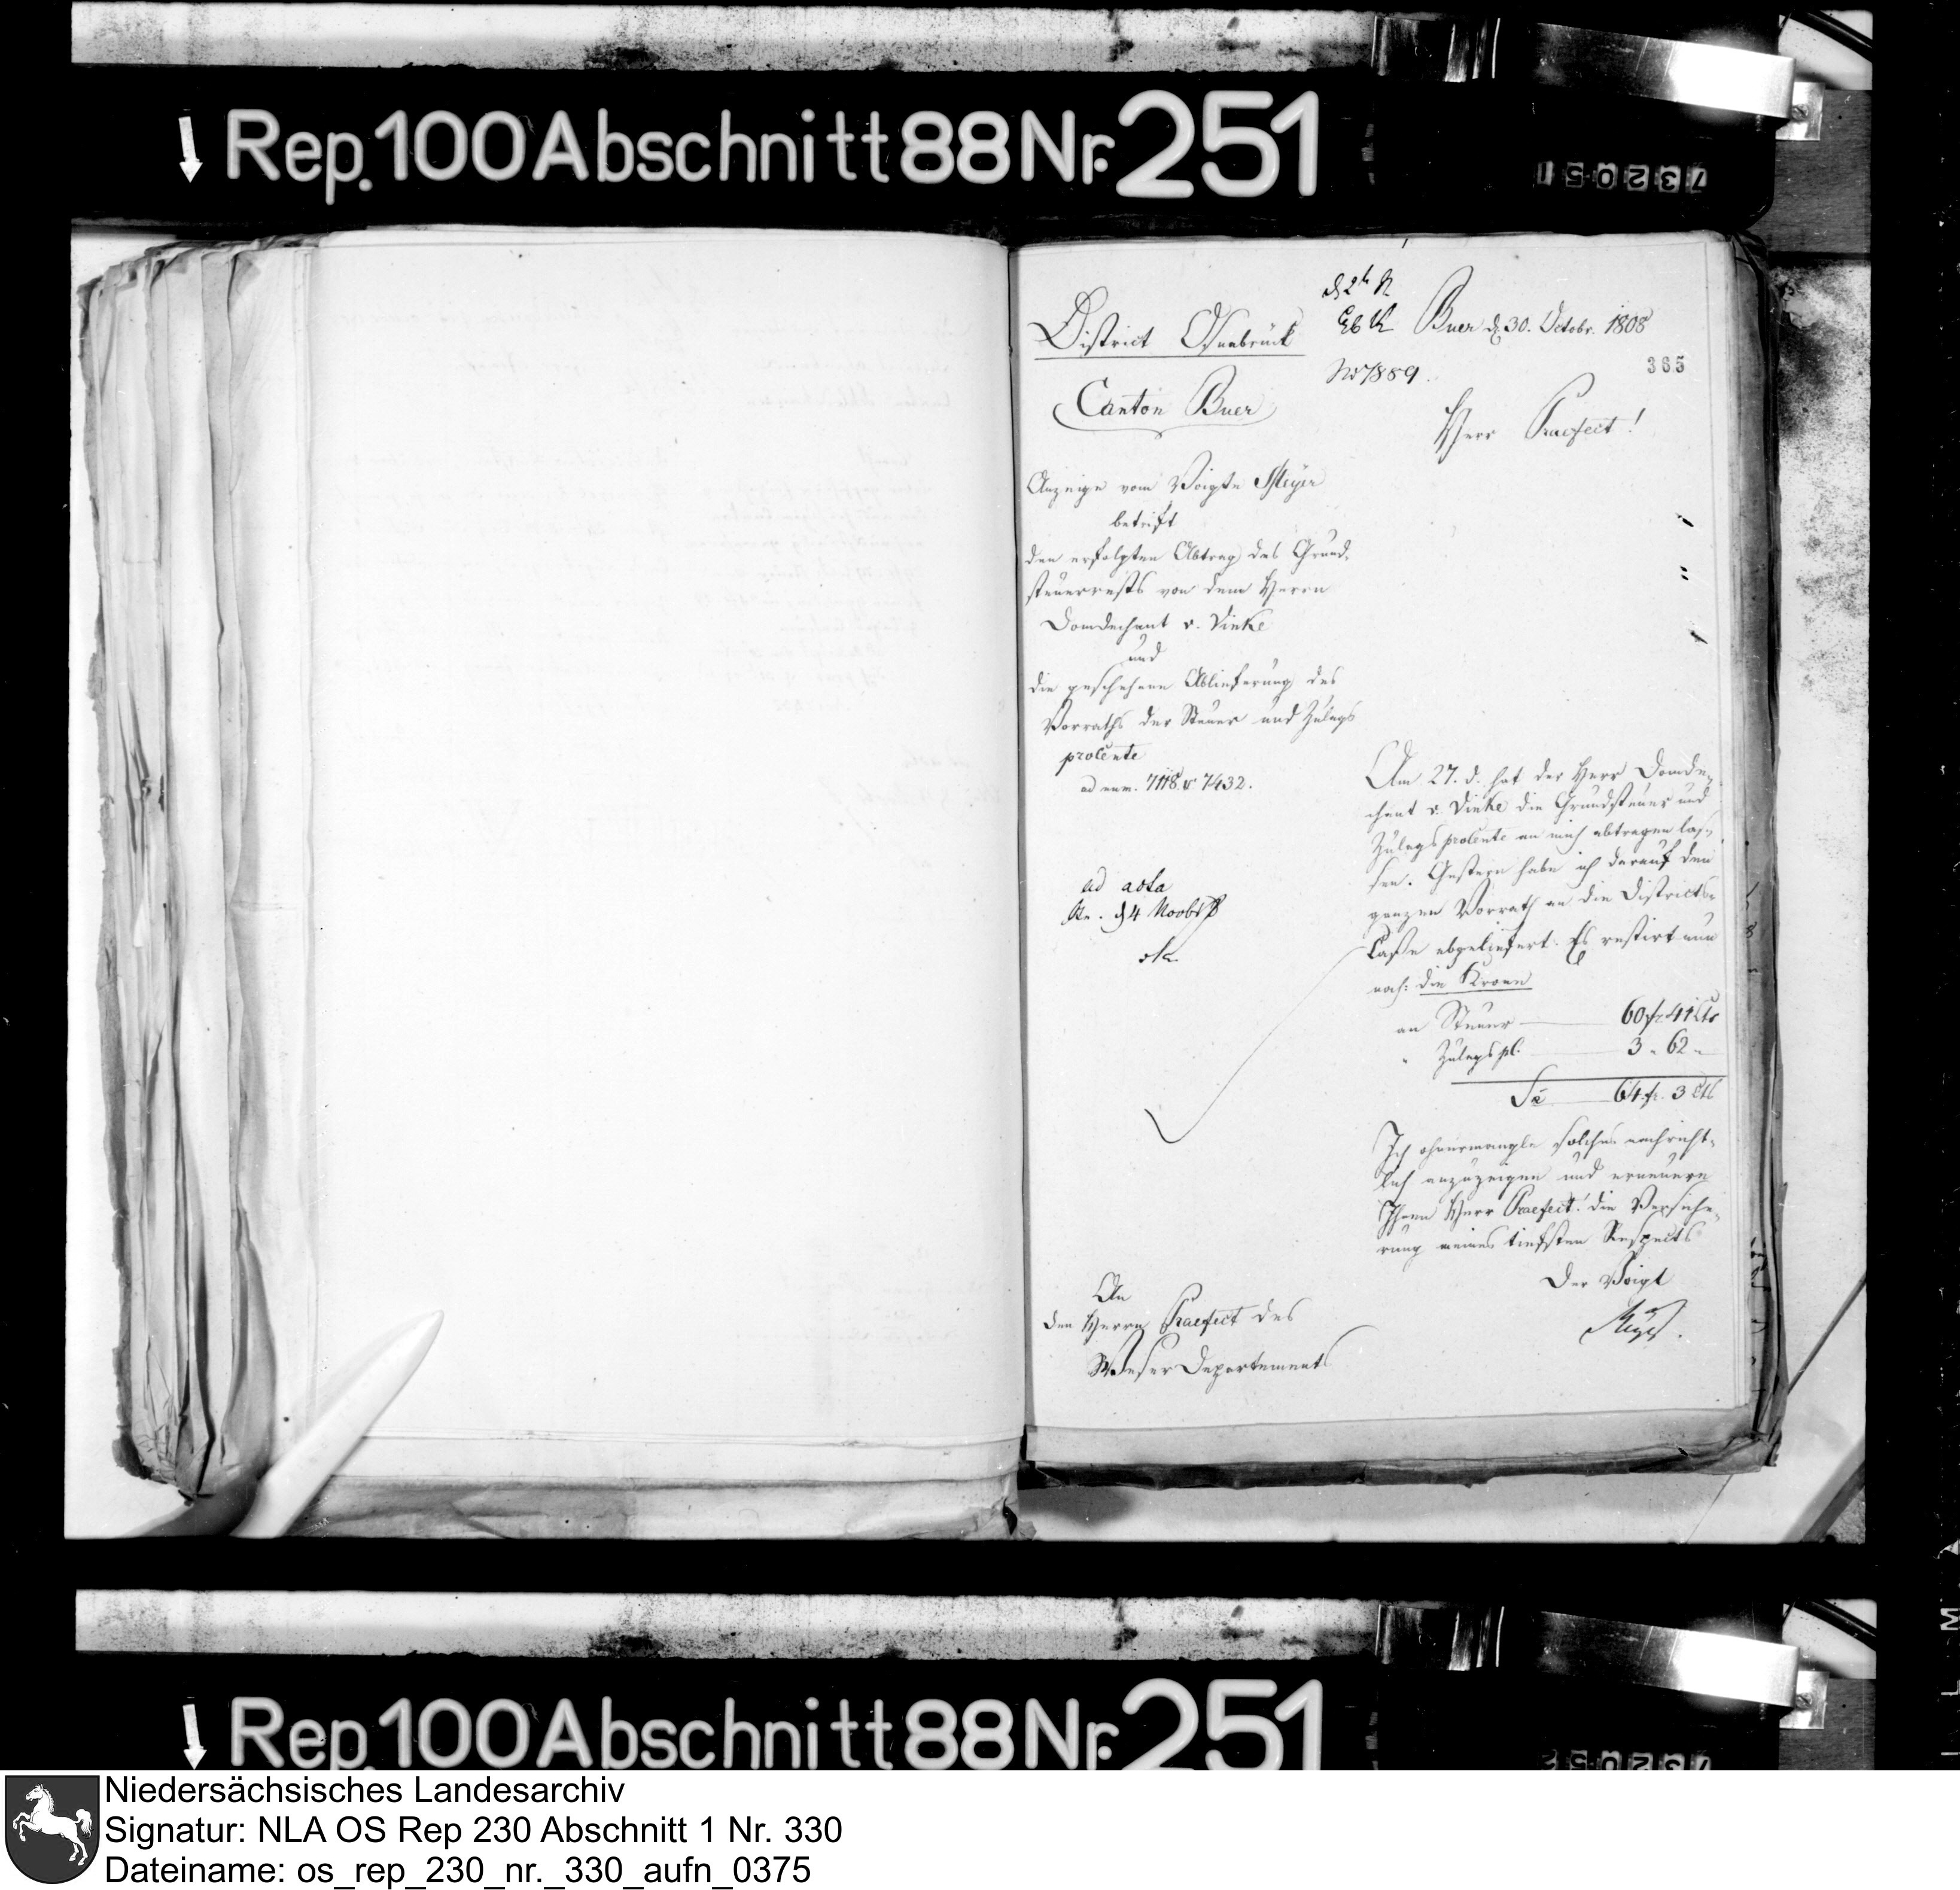 Rep. 100 Abschnitt 88 Nr. 251
732051
District Osnabrück
Canton Buer
Buer d 30. Octobr. 1808
N 7889.
365
Herr Praefect!
Anzeige vom Voigte Meyer
betrift
den erfolgten Abtrag des Grund-
steuerrests von dem Herrn
Domdechant v. Vinke
und
die geschehene Ablieferung des
Vorraths der Steuer und Zulags
procente
ad num. 7118. & 7432.
ad acta
d 4 Novbr
Am 27. d. hat der Herr Domde-
chant v. Vinke die Grundsteuer und
Zulagsprocente an mich abtragen las-
sen. Gestern habe ich darauf den
ganzen Vorrath an die Districts-
Casse abgeliefert. Es restirt nun
noch: die Krone
an Steuer 60 fr 41 Cts
" ZulagspC. 3 " 62 "
Sa 64 fr. 3 Cts
Ich ohnermangle solches nachricht-
lich anzuzeigen und erneuere
Ihnen Herr Praefect! die Versiche-
rung meines tiefsten Respects
Der Voigt
Meyer.
An
den Herrn Praefect des
Weser Departements
Rep. 100 Abschnitt 88 Nr. 251
Niedersächsisches Landesarchiv
Signatur: NLA OS Rep 230 Abschnitt 1 Nr. 330
Dateiname: os_rep_230_nr._330_aufn_0375